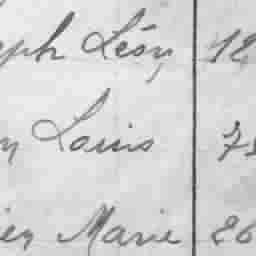 eph Léon 12
n Louis 75
ien Marie 26